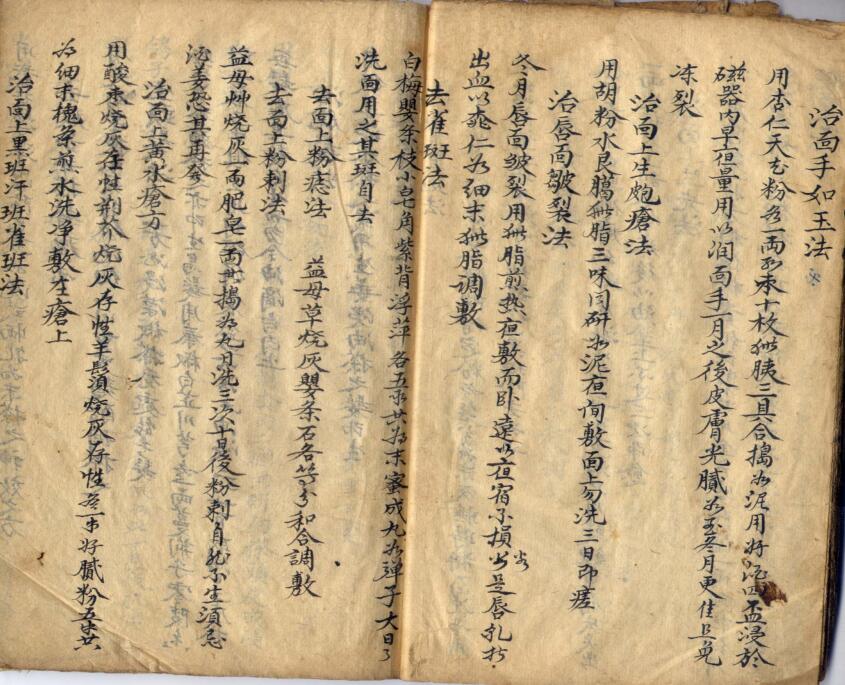 治面手如玉法
用杏仁天花粉各一两红枣十枚猪胰三具合搗如泥用好酒四盃浸於
磁器内早但量用以润面手一月之後皮膚光膩如玉冬月更佳且免
冻裂
治面上生皰瘡法
用胡粉水艮膓猪脂三味同研如泥夜间敷面上勿洗三日即瘥
治唇面皴裂法
冬月唇面皴裂用猪脂煎热夜敷而卧遠以夜宿不損 是唇
出血以桃仁为细末猪脂调敷
去雀斑法
白梅嬰条枝小皂角紫背浮萍各五 共为末蜜成丸如弹子大日
洗面用之其斑自去
去面上粉痣法 益母草烧灰嬰条石各等分和合調敷
去面上粉刺法
益母艸烧灰一两肥皂一两共搗为丸日洗三次十日後粉刺自然不生須忌
酒姜恐其再發
治面上黄水瘡方
用酸枣烧灰存性荆芥烧灰存性羊鬚烧灰存性各一 好膩粉五 共
为细末槐条煎水洗净敷在瘡上
治面上黑斑汗班雀班法